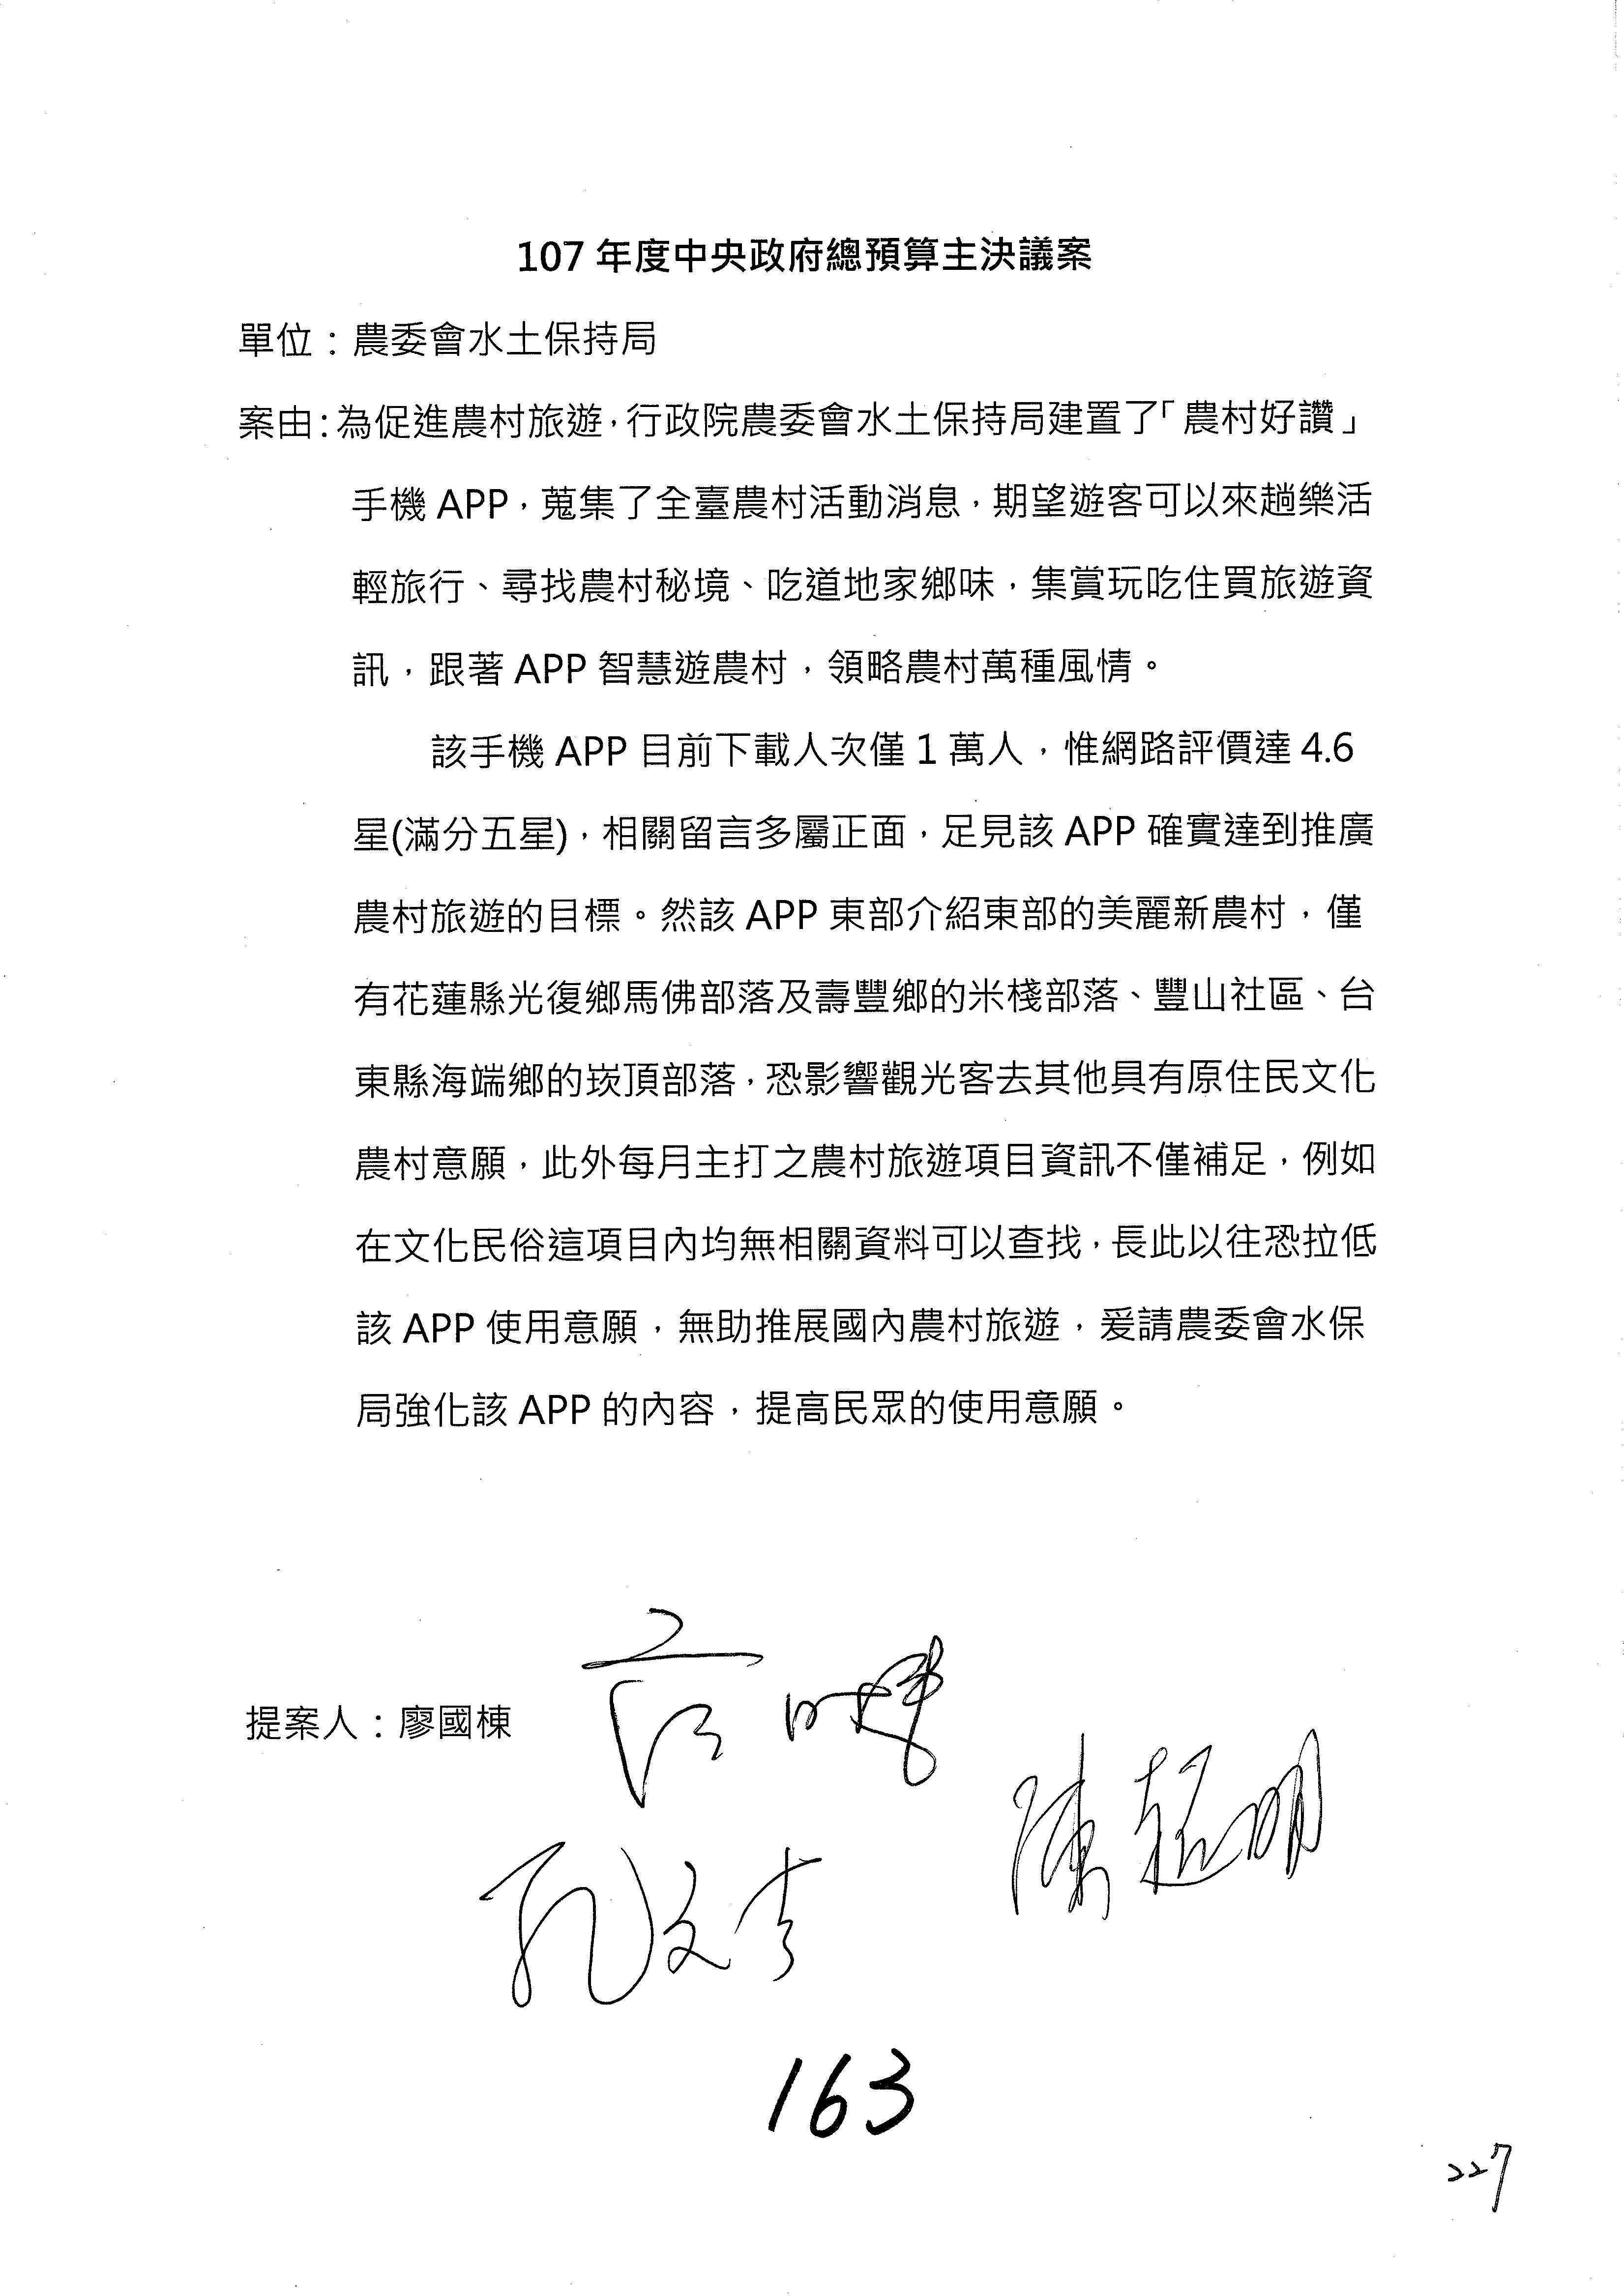 107 年度中央政府總預算主決議案
單位：農委會水土保持局
案由：為促進農村旅遊，行政院農委會水土保持局建置了「農村好讚」
手機 APP，蒐集了全臺農村活動消息，期望遊客可以來趟樂活
輕旅行、尋找農村秘境、吃道地家鄉味，集賞玩吃住買旅遊資
訊，跟著 APP 智慧遊農村，領略農村萬種風情。
該手機 APP 目前下載人次僅 1 萬人，惟網路評價達 4.6
星(滿分五星)，相關留言多屬正面，足見該 APP 確實達到推廣
農村旅遊的目標。然該 APP 東部介紹東部的美麗新農村，僅
有花蓮縣光復鄉馬佛部落及壽豐鄉的米棧部落、豐山社區、台
東縣海端鄉的崁頂部落，恐影響觀光客去其他具有原住民文化
農村意願，此外每月主打之農村旅遊項目資訊不僅補足，例如
在文化民俗這項目內均無相關資料可以查找，長此以往恐拉低
該 APP 使用意願，無助推展國內農村旅遊，爰請農委會水保
局強化該 APP 的內容，提高民眾的使用意願。
提案人：廖國棟
孔文吉
陳超明
163
227